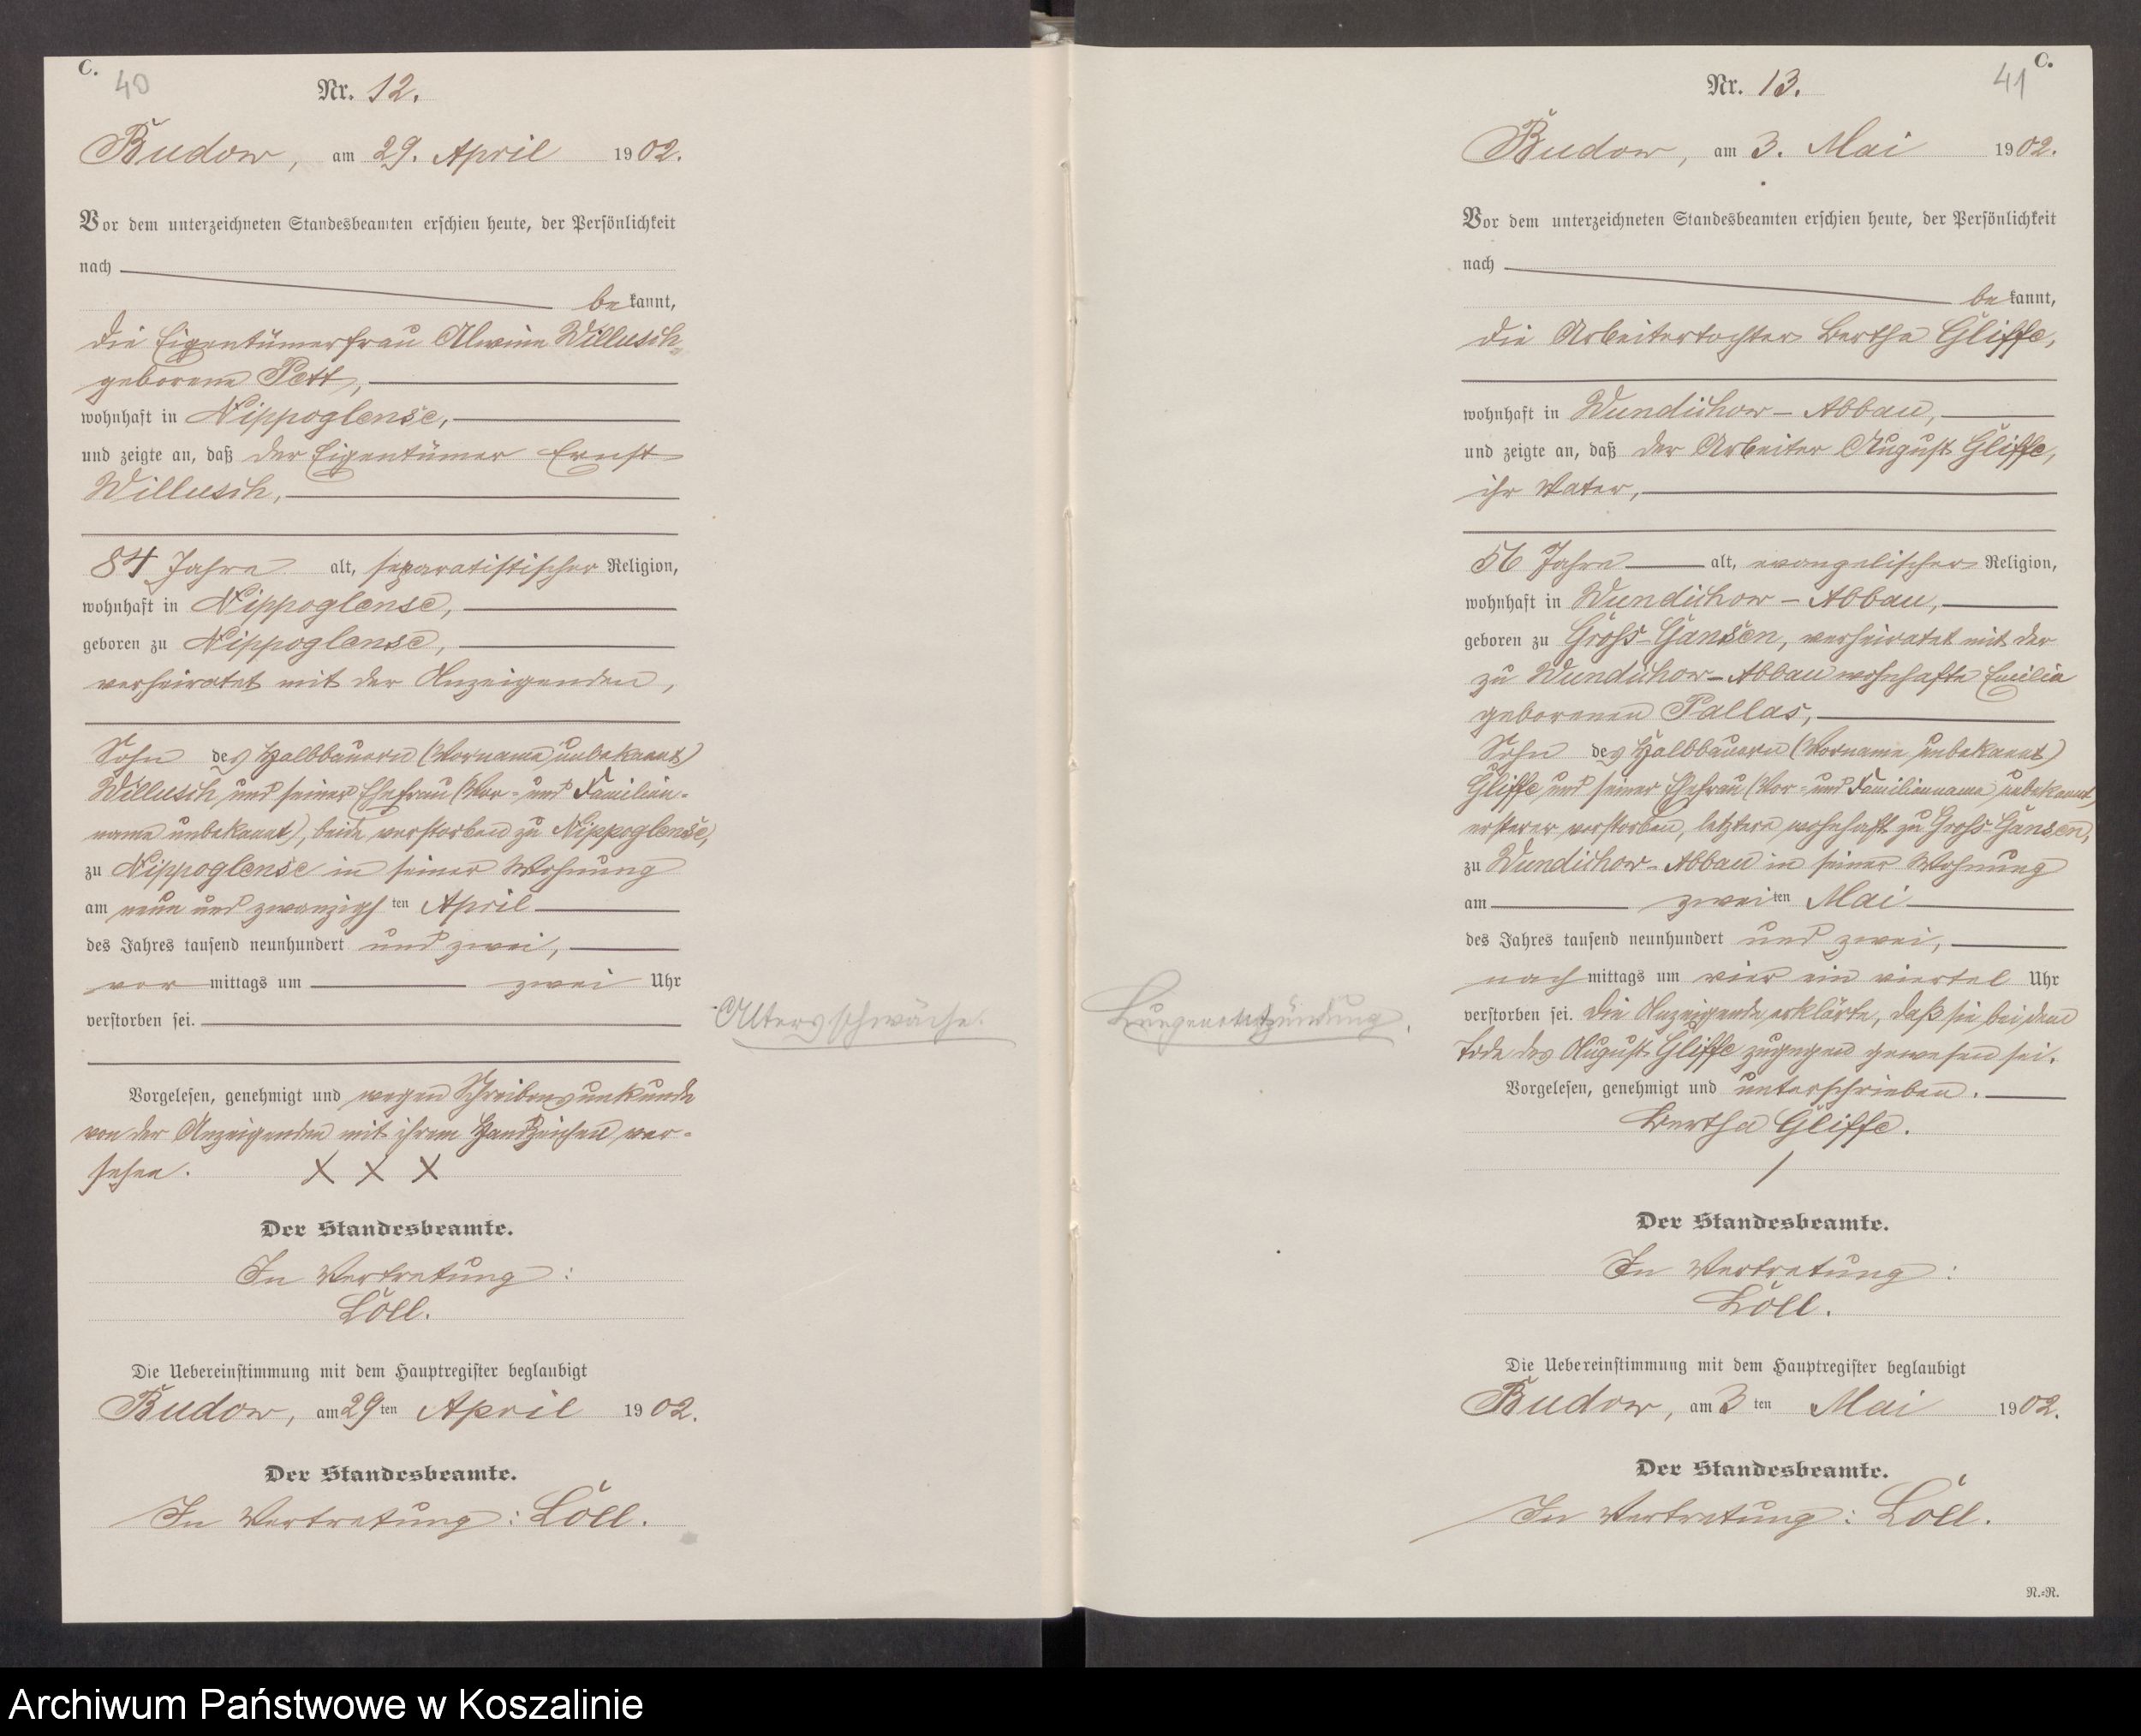 C.
40
Nr. 12.
Budow, am 29. April 1902.
Vor dem unterzeichneten Standesbeamten erschien heute, der Persönlichkeit
nach
bekannt,
die Eigentümerfrau Alwine Willusch
geborene Pett,
wohnhaft in Nippoglense,
und zeigte an, daß der Eigentümer Ernst
Willusch,
84 Jahre alt, separatistischer Religion,
wohnhaft in Nippoglense,
geboren zu Nippoglense,
verheiratet mit der Anzeigenden,
Sohn des Halbbauern (Vorname unbekannt)
Willusch und seiner Ehefrau (Vor- und Familien-
name unbekannt), beide verstorben zu Nippoglense,
zu Nippoglense in seiner Wohnung
am neun und zwanzigsten April
des Jahres tausend neunhundert und zwei,
vormittags um zwei Uhr
verstorben sei.
Altersschwäche.
Vorgelesen, genehmigt und wegen Schreibensunkunde
von der Anzeigenden mit ihrem Handzeichen ver-
sehen. X X X
Der Standesbeamte.
In Vertretung:
Löll.
Die Uebereinstimmung mit dem Hauptregister beglaubigt
Budow, am 29ten April 1902.
Der Standesbeamte.
In Vertretung: Löll.
C.
41
Nr. 13.
Budow, am 3. Mai 1902.
Vor dem unterzeichneten Standesbeamten erschien heute, der Persönlichkeit
nach
bekannt,
die Arbeitertochter Bertha Gliffe,
wohnhaft in Wundichow-Abbau,
und zeigte an, daß der Arbeiter August Gliffe,
ihr Vater,
56 Jahre alt, evangelischer Religion,
wohnhaft in Wundichow-Abbau,
geboren zu Groß-Gansen, verheiratet mit der
zu Wundichow-Abbau wohnhafte Emilie
geborenen Pallas,
Sohn des Halbbauern (Vorname unbekannt)
Gliffe und seiner Ehefrau (Vor- und Familienname unbekannt)
ersterer verstorben, letztere wohnhaft zu Groß-Gansen,
zu Wundichow-Abbau in seiner Wohnung
am zweiten Mai
des Jahres tausend neunhundert und zwei,
nachmittags um vier ein viertel Uhr
verstorben sei. Die Anzeigende erklärte, daß sie bei dem
Tode des August Gliffe zugegen gewesen sei.
Lungenentzündung.
Vorgelesen, genehmigt und unterschrieben.
Bertha Gliffe.
Der Standesbeamte.
In Vertretung:
Löll.
Die Uebereinstimmung mit dem Hauptregister beglaubigt
Budow, am 3ten Mai 1902.
Der Standesbeamte.
In Vertretung: Löll.
N.-N.
Archiwum Państwowe w Koszalinie